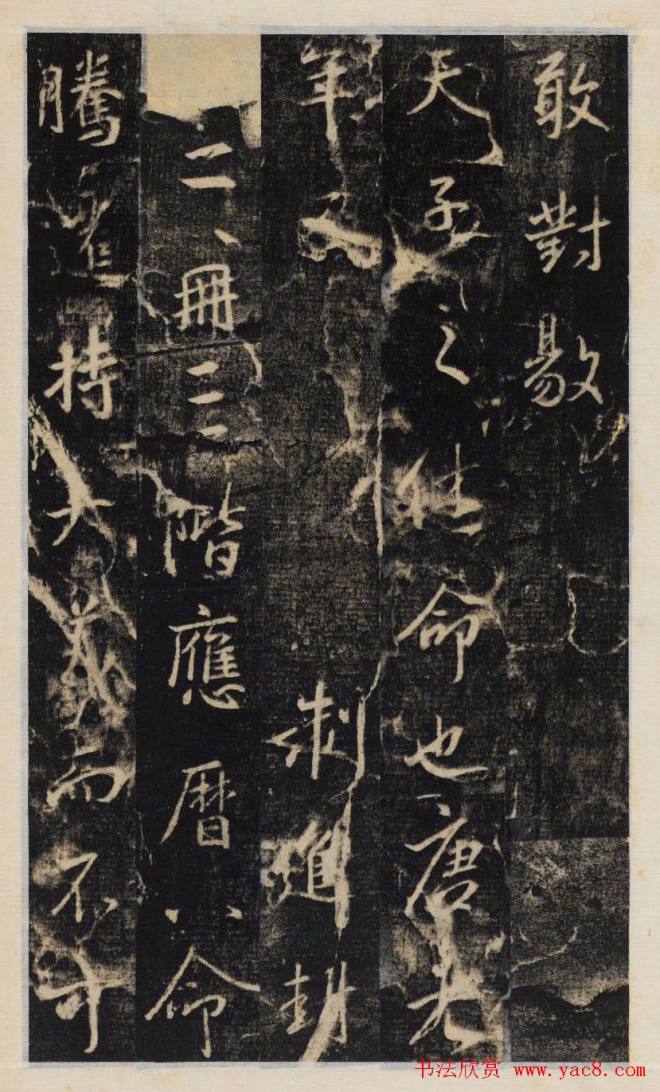 敢對敭
天子之休命也唐元
年 制進封
二冊三階應曆八命
騰遷持大義而不可
www.yac8.com 书法欣赏